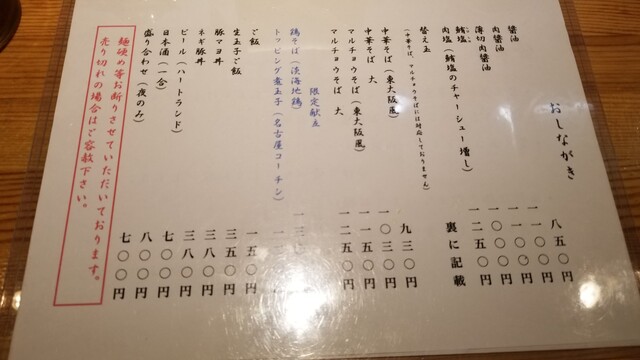 おしながき
醤油 八五〇円
肉醤油 一一〇〇円
薄切肉醤油 一一〇〇円
鮪塩 一〇〇〇円
肉塩（鮪塩のチャーシュー増し） 一二五〇円
替え玉 裏に記載
（中華そば、マルチョウそばには対応しておりません）
中華そば（東大阪風） 九三〇円
中華そば 大 一〇三〇円
マルチョウそば（東大阪風） 一一五〇円
マルチョウそば 大 一二五〇円
限定献立
鶏そば（淡海地鶏）
トッピング煮玉子（名古屋コーチン）
ご飯 一五〇円
生玉子ご飯 三五〇円
豚マヨ丼 三八〇円
ネギ豚丼 三八〇円
ビール（ハートランド） 七〇〇円
日本酒（一合） 八〇〇円
盛り合わせ（夜のみ） 七〇〇円
麺硬め等お断りさせていただいております。
売り切れの場合はご容赦下さい。